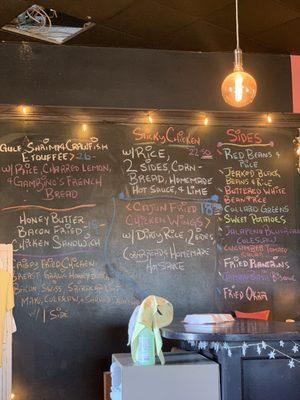 Gulf Shrimp & Crawfish
Etouffee > 26-
w/ Rice, Charred Lemon,
& Gambino's French
Bread
Honey Butter
Bacon Fried
Chicken Sandwich
Crispy Fried Chicken
Breast Garlic Honey
Bacon Swiss
Mayo, Coleslaw
w/ 1 Side
Sticky Chicken
w/ Rice, 22.50
2 Sides, Corn-
Bread, Homemade
Hot Sauce, & Lime
Cajun Fried
Chicken Wings >
w/ Dirty Rice, 2 sides
Cornbread & Homemade
Hot Sauce
Sides
Red Beans &
Rice
Jerked Black
Beans & Rice
Buttered White
Bean Rice
Collard Greens
Sweet Potatoes
Jalapeno
Coleslaw
Cucumber Tomato
Salad
Fried Plantains
Fried Okra